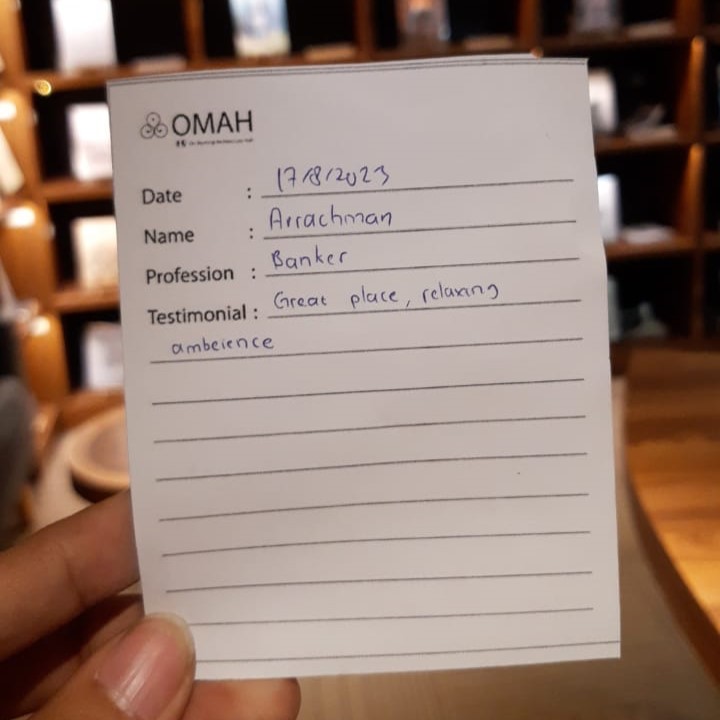 OMAH
Date : 17/8/2023
Name : Arrachman
Profession : Banker
Testimonial : Great place, relaxing
ambeience